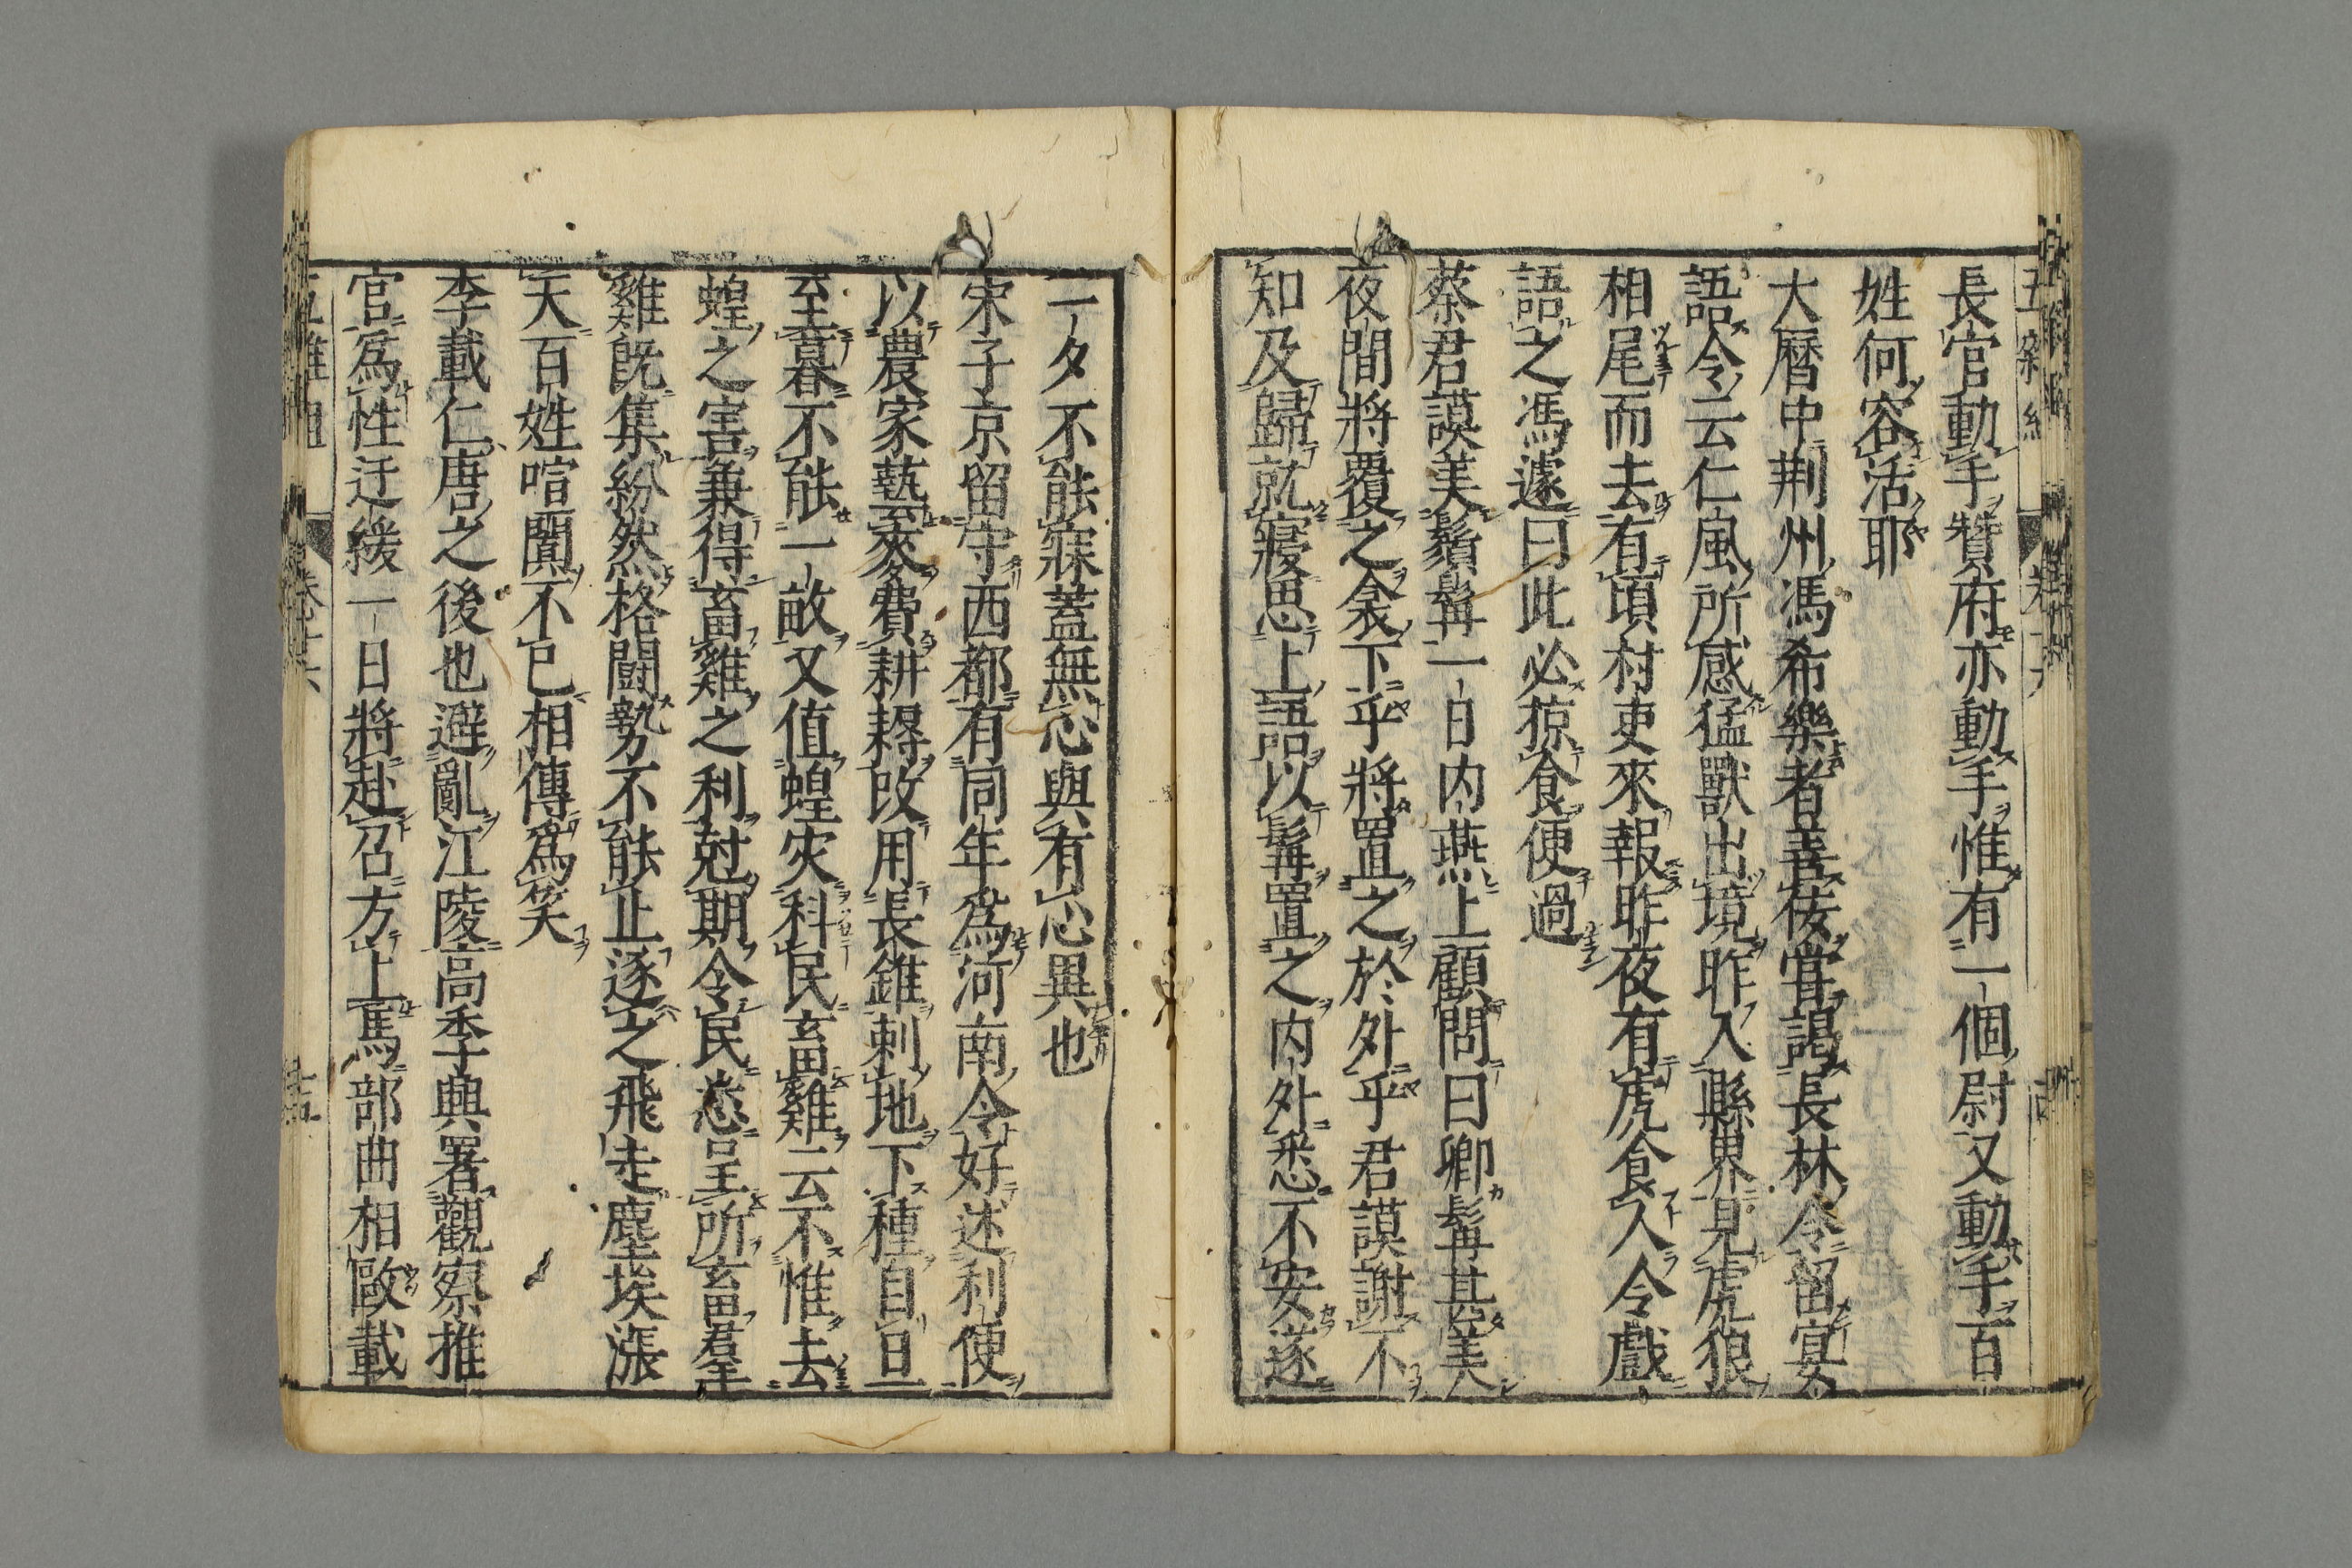 長官動手贊府亦動手惟有一個尉又動手百
姓何容活耶
大曆中荆州馮希樂者善佞甞謁長林令留宴
語令云仁風所感猛獸出境昨入縣界見虎狼
相尾而去有頃村吏來報昨夜有虎食人令戲
語之馮遽曰此必掠食便過
蔡君謨美鬚髯一日内燕上顧問曰卿髯甚美
夜間將覆之衾下乎將置之於外乎君謨謝不
知及歸就寢思上語以髯置之内外悉不安遂
一夕不能寐蓋無心與有心異也
宋子京留守西都有同年爲河南令好述利便
以農家藝麥費耕耨改用長錐刺地下種自旦
至暮不能一畝又值蝗灾科民畜雞云不惟去
蝗之害兼得畜雞之利尅期令民悉呈所畜羣
雞既集紛然格鬪勢不能止逐之飛走塵埃漲
天百姓喧闐不已相傳爲笑
李載仁唐之後也避亂江陵高季興署觀察推
官爲性迂緩一日將赴召方上馬部曲相毆載